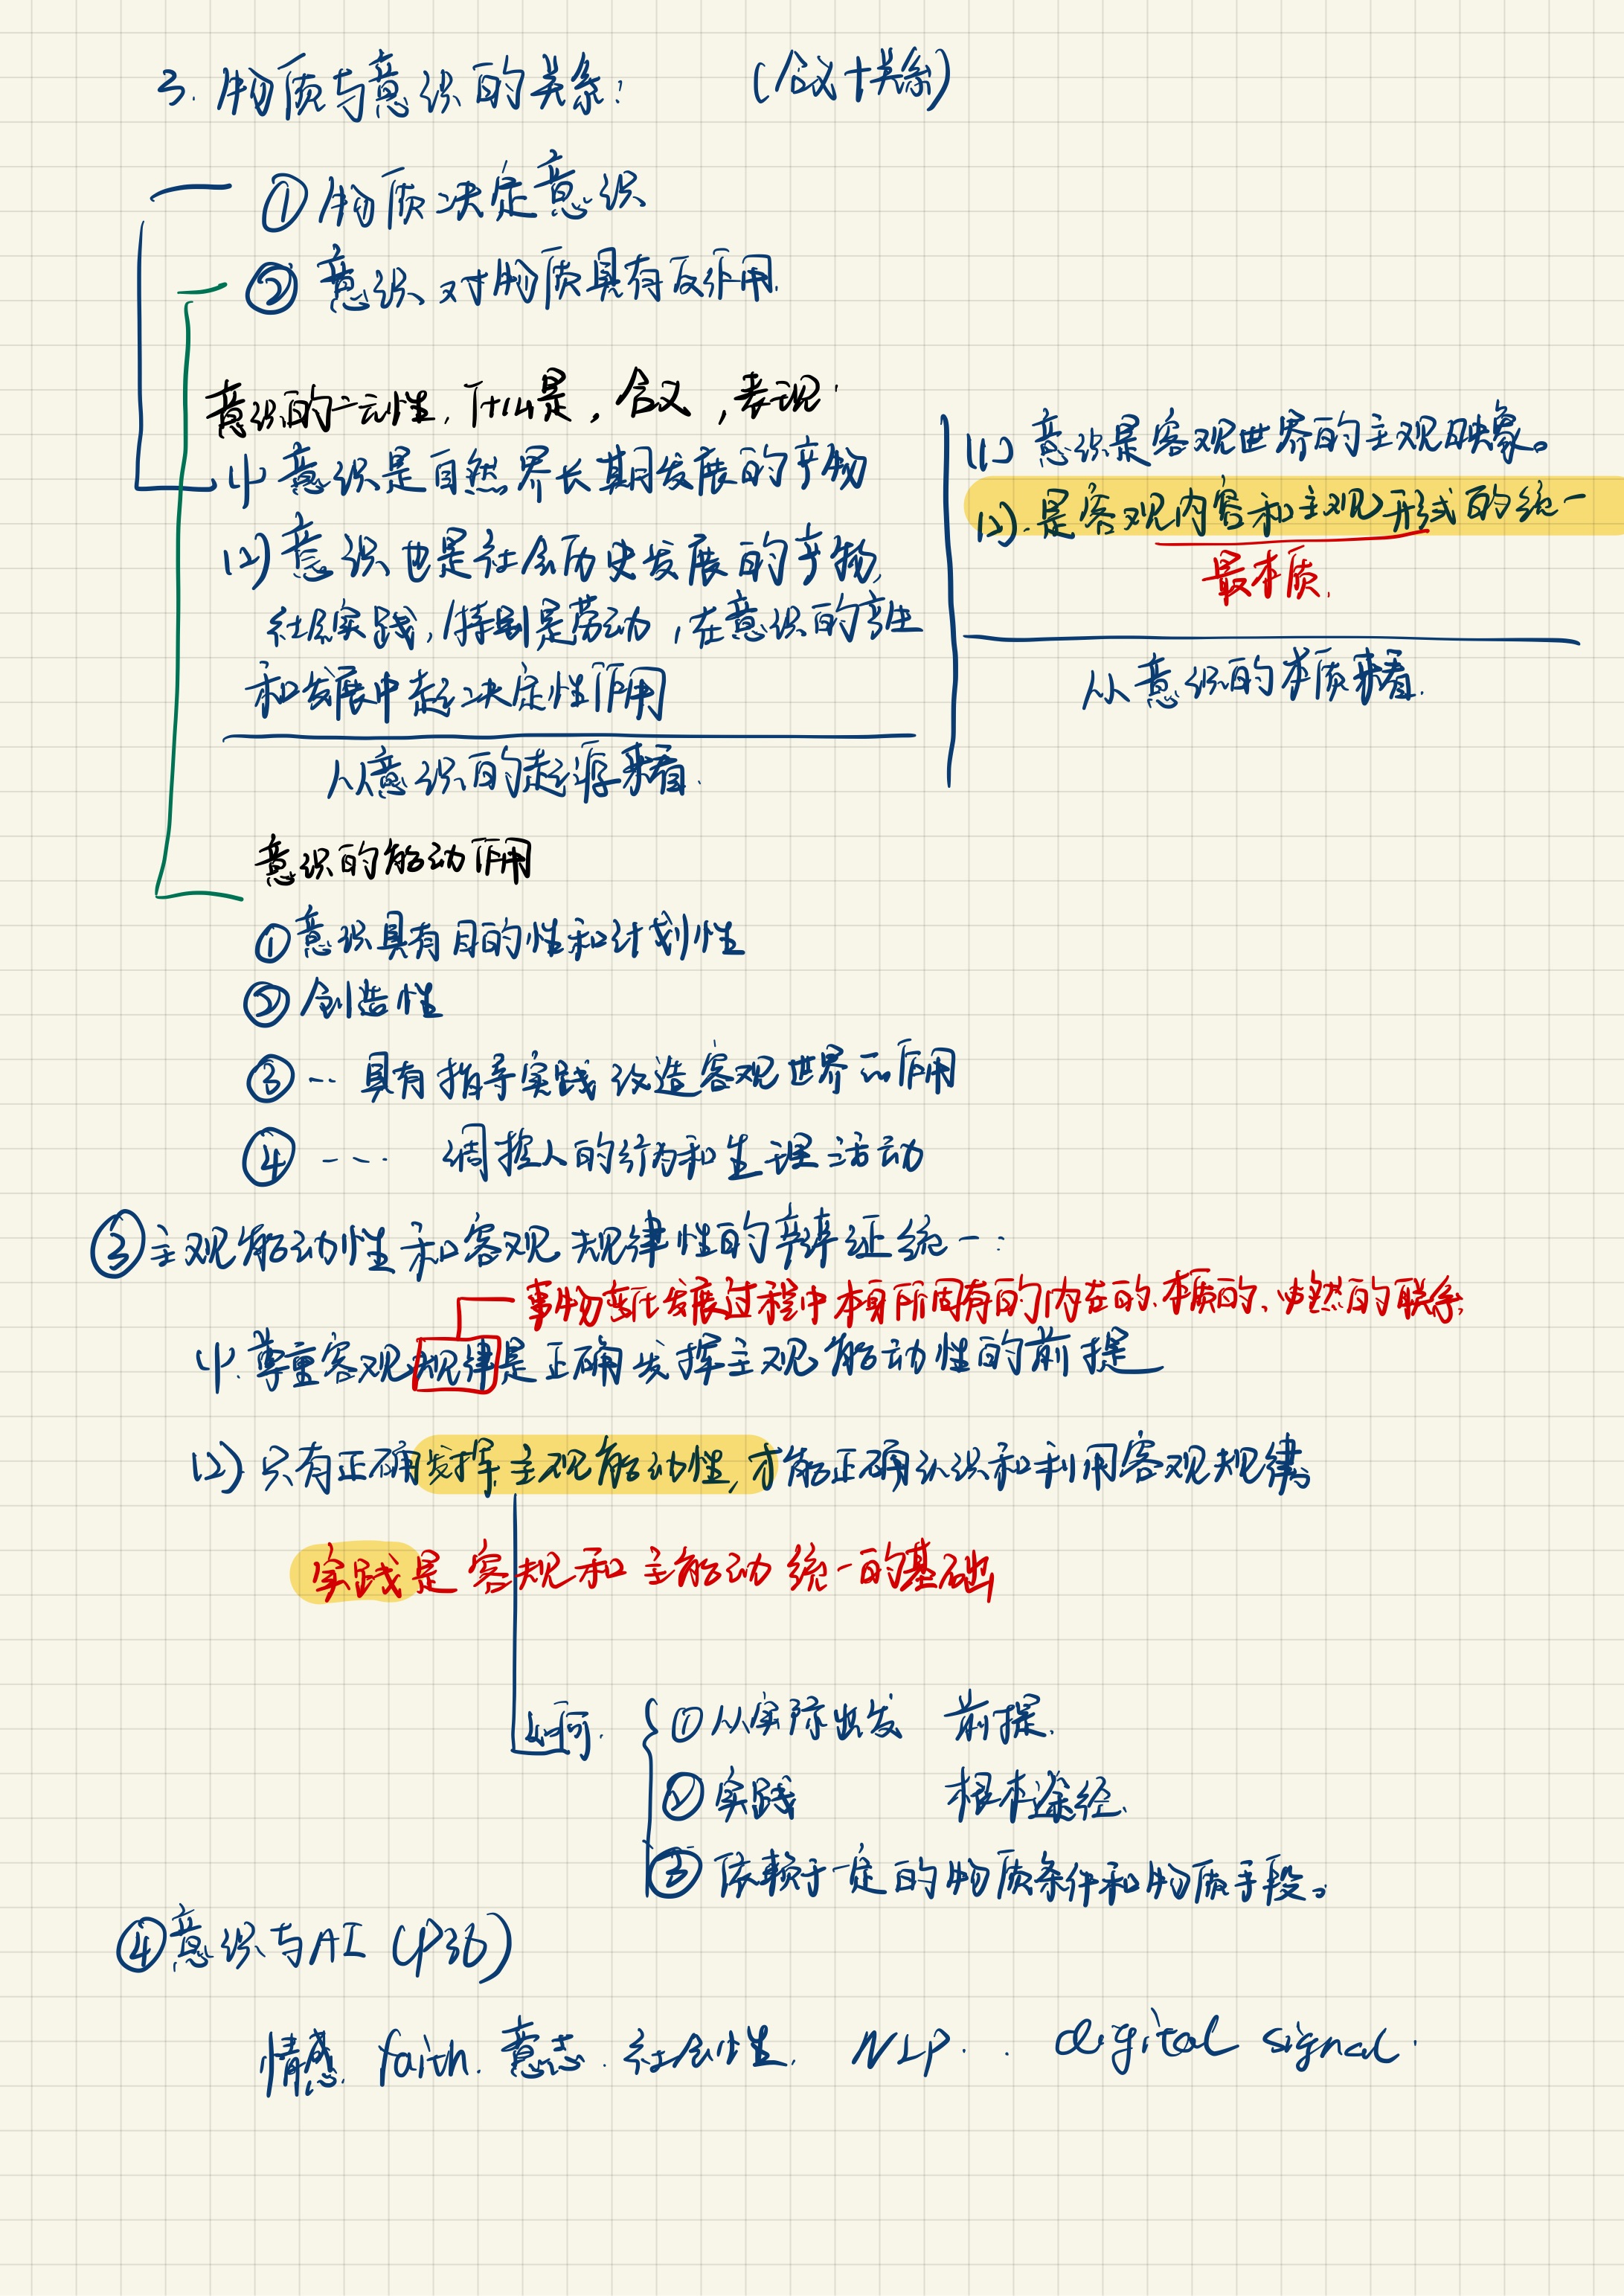 3. 物质与意识的关系: (含义+关系)
① 物质决定意识
② 意识对物质具有反作用.
意识的 性, 什么是, 含义, 表现:
(1) 意识是自然界长期发展的产物
(2) 意识也是社会历史发展的产物,
社会实践, 特别是劳动, 在意识的产生
和发展中起决定性作用
从意识的起源来看.
(1) 意识是客观世界的主观映象。
(2). 是客观内容和主观形式的统一
最本质.
从意识的本质来看.
意识的能动作用
① 意识具有目的性和计划性
② 创造性
③ … 具有指导实践改造客观世界的作用
④ …. 调控人的行为和生理活动
③ 主观能动性和客观规律性的辩证统一:
事物变化发展过程中本身所固有的内在的、本质的、必然的联系,
(1). 尊重客观规律是正确发挥主观能动性的前提
(2) 只有正确发挥主观能动性, 才能正确认识和利用客观规律
实践是客规和主能动统一的基础
如何.
① 从实际出发 前提.
② 实践 根本途径.
③ 依赖于一定的物质条件和物质手段。
④ 意识与AI (P36)
情感. faith. 意志. 社会性. NLP.. digital signal.